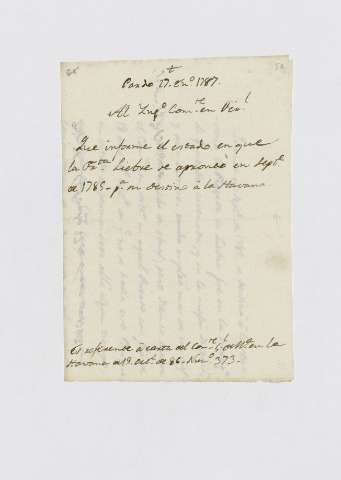 +
Pardo 27. En.º 1787.
Al Ing.º Com.te en Ger.l
Que informe el estado en que
la Frag.ta Liebre se apronto en Sept.e
de 1785. p.a su destino à la Havana
Es referente à carta del Com.te G.l de M.na en la
Havana de 19. oct.e de 86. Num.º 373.